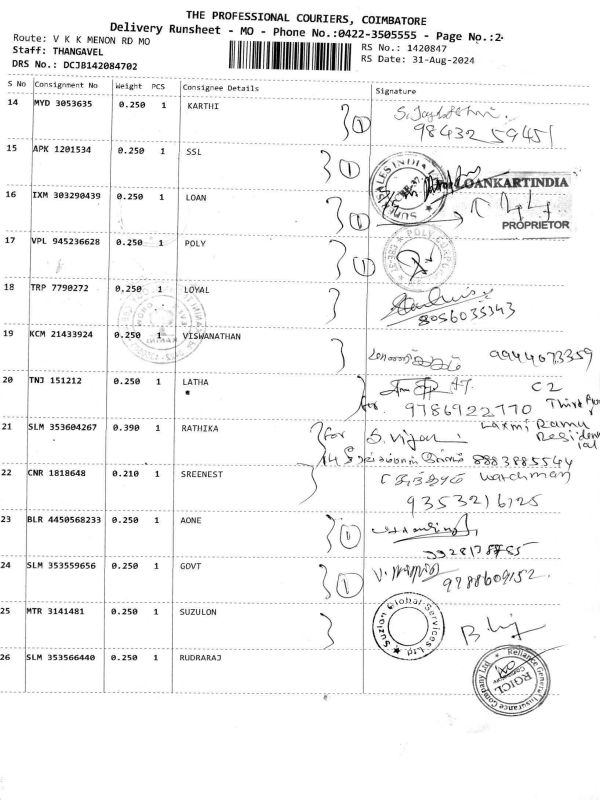 THE PROFESSIONAL COURIERS, COIMBATORE
Delivery Runsheet - MO - Phone No.:0422-3505555 - Page No.:2
Route: V K K MENON RD MO
RS No.: 1420847
Staff: THANGAVEL
RS Date: 31-Aug-2024
DRS No.: DCJB142084702
S No Consignment No Weight PCS Consignee Details Signature
14 MYD 3053635 0.250 1 KARTHI 1
98432 59451
15 APK 1201534 0.250 1 SSL 1
LOANKARTINDIA
16 IXM 303290439 0.250 1 LOAN 1
PROPRIETOR
17 VPL 945236628 0.250 1 POLY 1
18 TRP 7790272 0.250 1 LOYAL
8056035343
19 KCM 21433924 0.250 1 VISWANATHAN
9944073359
20 TNJ 151212 0.250 1 LATHA
C2
for 9786922770 Third
21 SLM 353604267 0.390 1 RATHIKA
for S. Vijaya Laxmi Ramu
Residential
8883885544
22 CNR 1818648 0.210 1 SREENEST
watchman
9353216125
23 BLR 4450568233 0.250 1 AONE 1
24 SLM 353559656 0.250 1 GOVT 1
9788609152
25 MTR 3141481 0.250 1 SUZULON
Suzlon Global Services Ltd
26 SLM 353566440 0.250 1 RUDRARAJ
Reliance General Insurance Company Ltd
RGICL